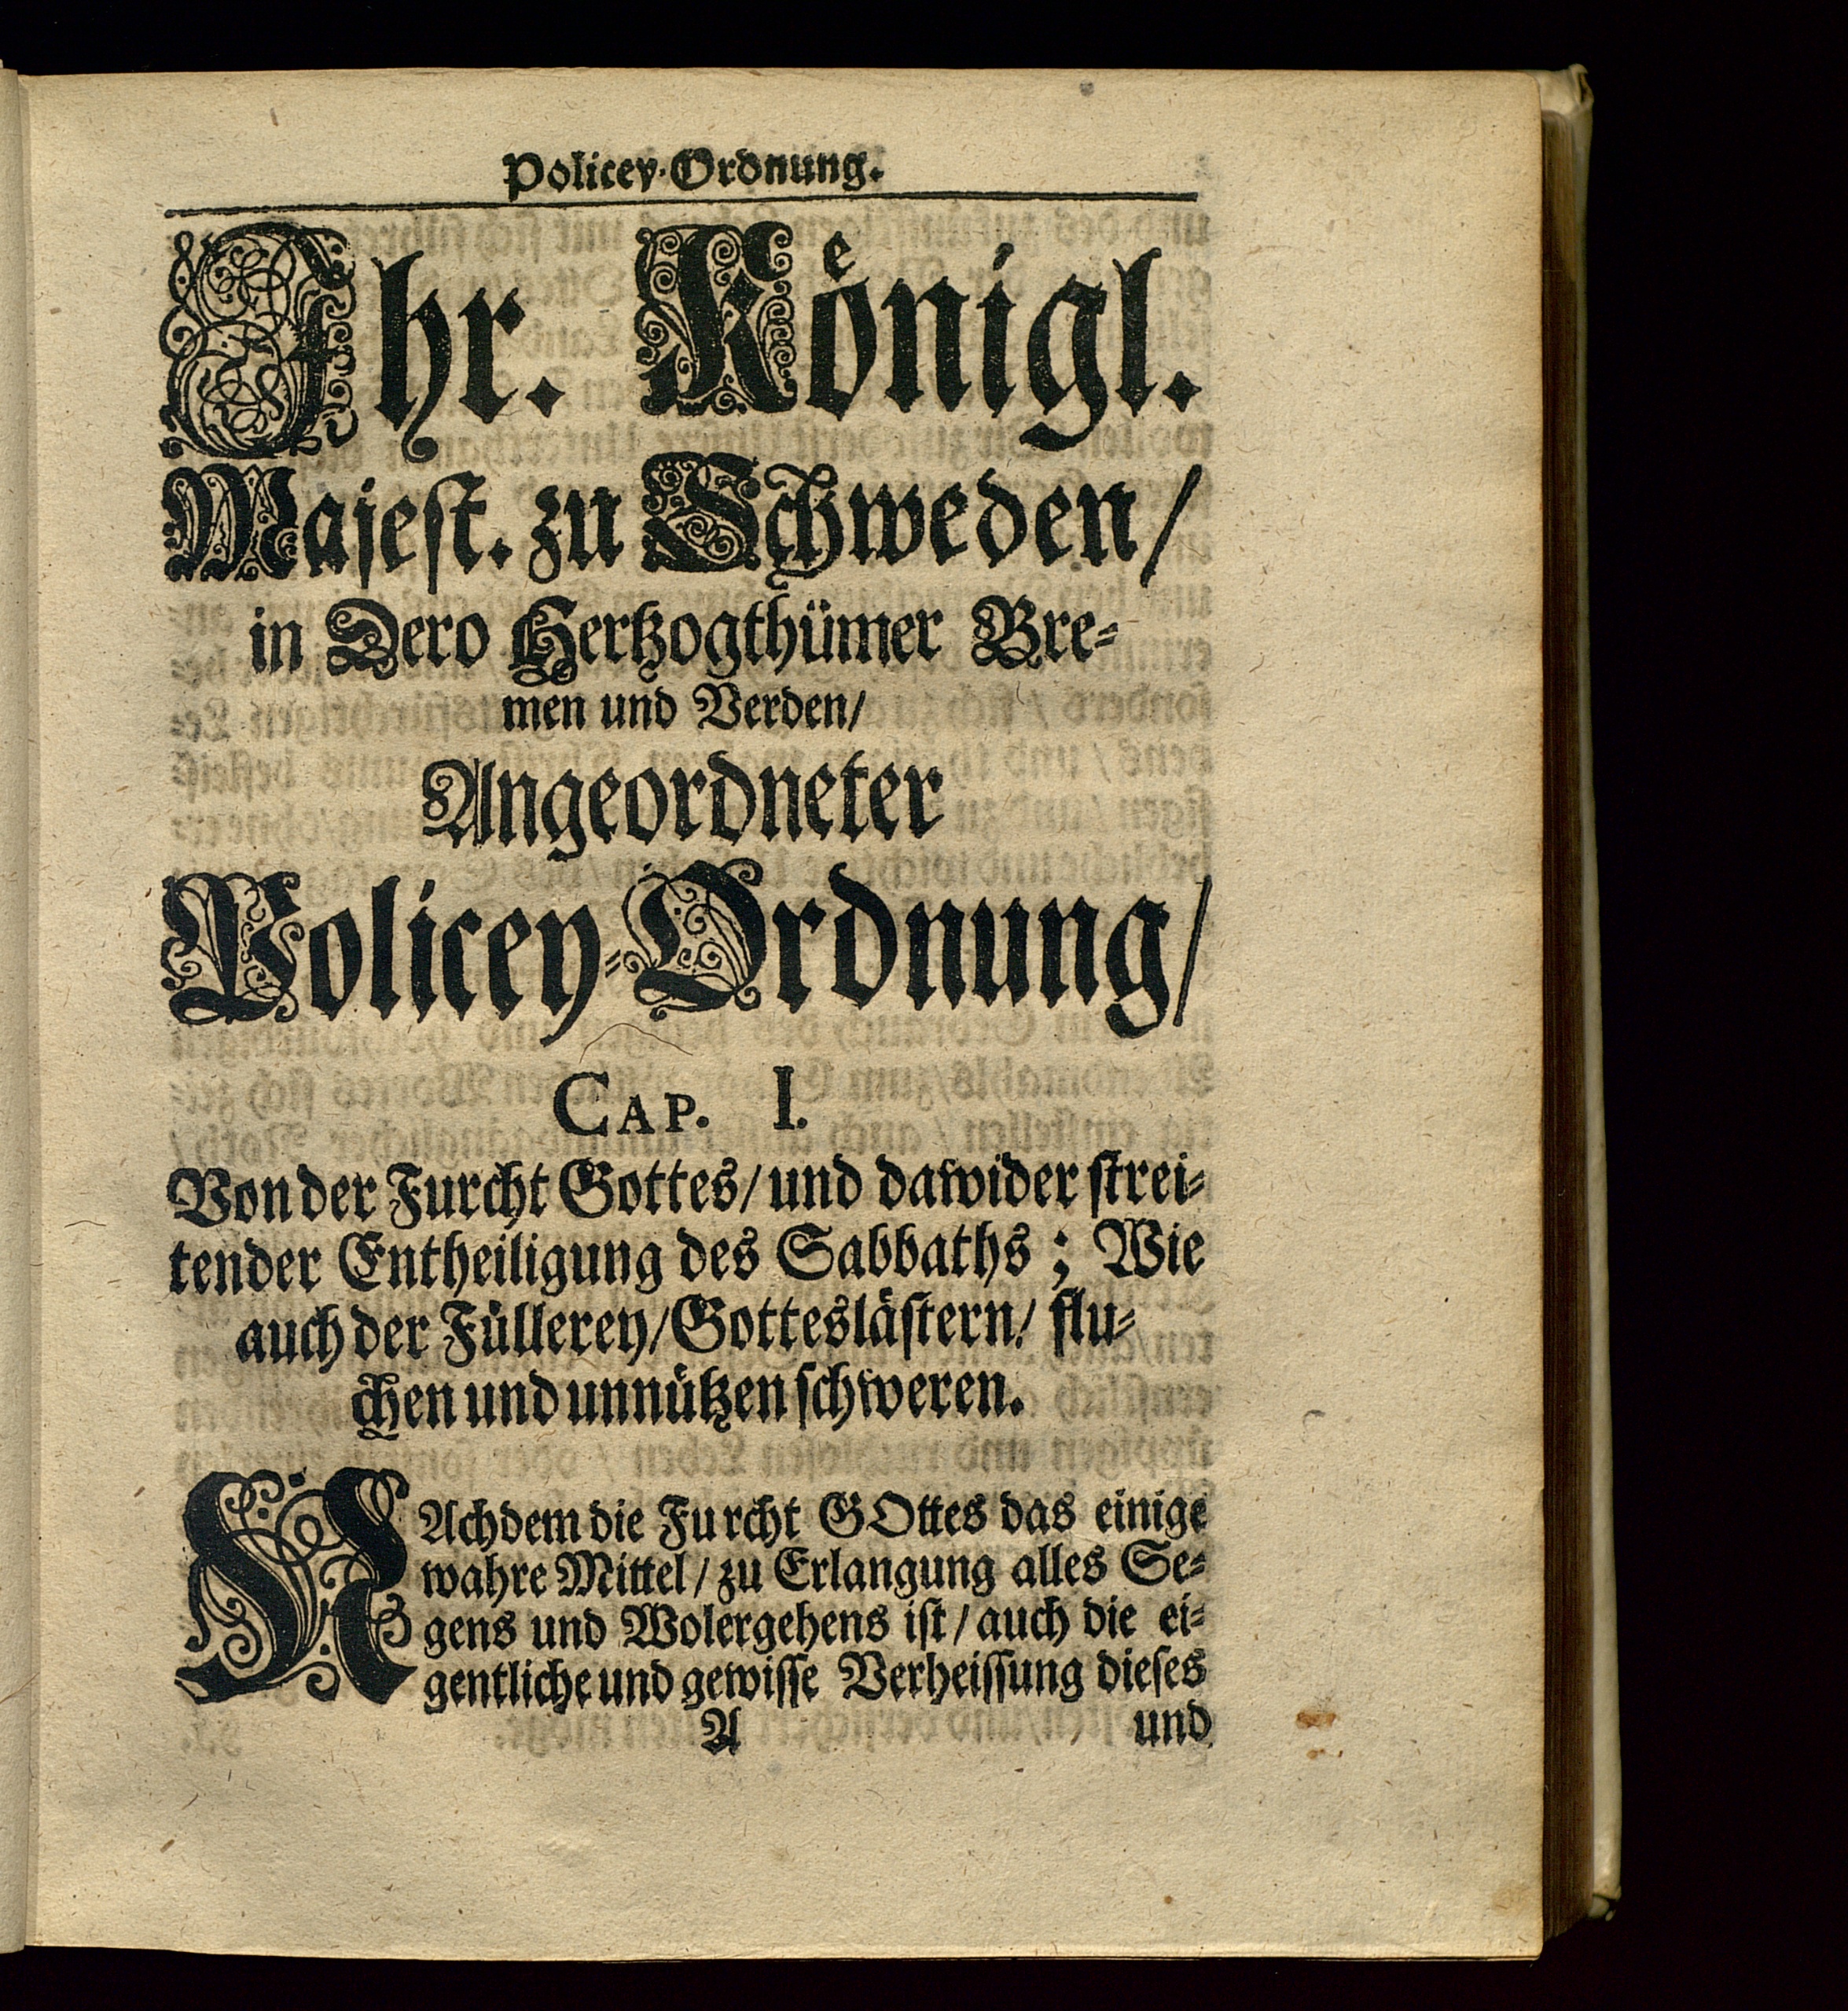 Policey-Ordnung.
Ihr. Königl.
Majest. zu Schweden/
in Dero Hertzogthümer Bre-
men und Verden/
Angeordneter
Policey-Ordnung/
CAP. I.
Von der Furcht Gottes/ und dawider strei-
tender Entheiligung des Sabbaths; Wie
auch der Füllerey/ Gotteslästern/ flu-
chen und unnützen schweren.
NAchdem die Furcht GOttes das einige
wahre Mittel/ zu Erlangung alles Se-
gens und Wolergehens ist/ auch die ei-
gentliche und gewisse Verheissung dieses
A und